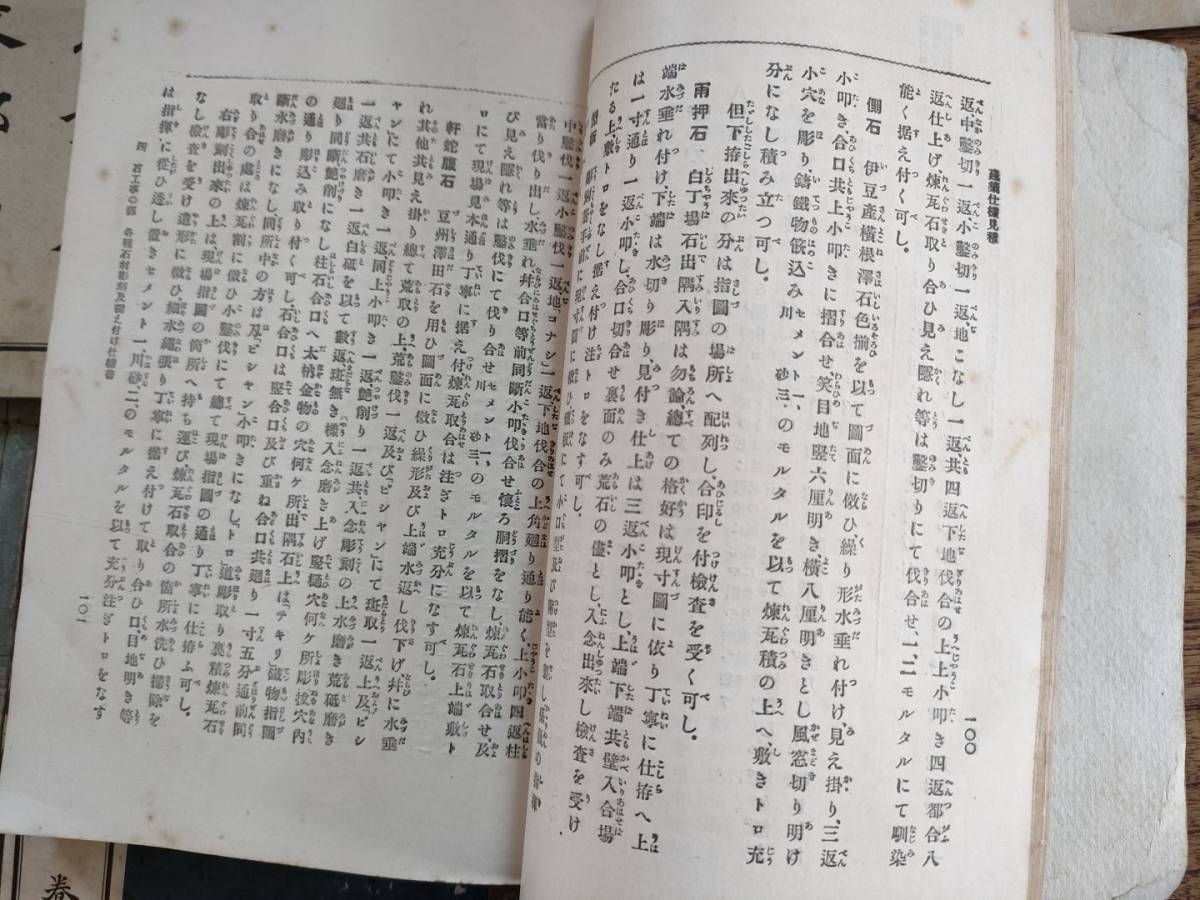 建築仕樣見積
一〇〇
返中鑿切一返、小鑿切一返、地こなし一返、共四返下地伐合の上、上小叩き四返都合八
返仕上げ煉瓦石取り合ひ見え隱れ等は鑿切りにて伐合せ、一、二、モルタルにて馴染
能く据え付く可し。
側石 伊豆產橫根澤石色揃を以て圖面に倣ひ繰り形水垂れ付け、見え掛り、三返
小叩き、合口共上小叩きに摺合せ笑目地竪六厘明き、橫八厘明きとし風窓切り明け
小穴を彫り鑄鐵物篏込み川セメント一、砂三、のモルタルを以て煉瓦積の上へ敷きトロ充
分になし積み立つ可し。
但下拵出來の分は指圖の場所へ配列し、合印を付檢査を受く可し。
雨押石 白丁場石出隅入隅は勿論總ての格好は現寸圖に依り丁寧に仕拵へ上
端水垂れ付け、下端は水切り彫り、見付き仕上は三返小叩とし、上端下端共壁入合場
は一寸通り一返小叩し、合口切合せ裏面のみ荒石の儘とし、入念出來し檢査を受け
たる上、敷トロをなし据え付け注トロをなす可し。
中鑿伐一返小鑿伐一返地「コナシ」一返下地伐合の上角廻り通り能く、上小叩四返柱
當り伐り出し、水垂れ幷合口等前同斷小叩伐合せ懷ろ胴摺をなし、煉瓦石取合せ及
び見え隱れ等は鑿伐にて伐り合せセメント一、川砂三、のモルタルを以て煉瓦石上端敷ト
ロにて現場見本通り丁寧に据え付、煉瓦取合は注ぎトロ充分になす可し。
軒蛇腹石 豆州澤田石を用ひ圖面に倣ひ繰形及び上端水返し伐下げ幷に水垂
れ其他共見え掛り總て荒取の上、荒鑿伐一返及「ビシャン」にて斑取一返、上及「ビシ
ャン」にて小叩き一返同上小叩き一返艶削り一返共、入念彫刻の上水磨き荒砥磨き
一返共石磨き一返白砥を以て數返斑無き樣入念磨き上げ竪樋穴何ケ所彫拔穴內
廻り同斷艶削になし柱石合口へ太枘金物の穴何ケ所出隅石上は「チキリ」鐵物指圖
の通り彫り込み取り付く可し、石合口は竪合口及び重ね合口共廻り一寸五分通前同
斷水磨きになし同所中の方は及「ビシャン」小叩きになし、「トロ」道彫取り裏積煉瓦石
取り合の處は煉瓦割に倣ひ小鑿伐にて總て現場指圖の通り丁寧に仕拵ふ可し。
右彫刻出來の上は、現場指圖の箇所へ持ち運び煉瓦石取合の箇所水洗ひ掃除を
なし檢査を受け遣形に倣ひ、細水繩張り丁寧に据え付けて取り合ひ口、目地明き等
は指揮に從ひ透し置きセメント一、川砂、二のモルタルを以て充分注ぎトロをなす
四 石工事の部 各種石材彫刻及据え付け仕樣書
一〇一
卷